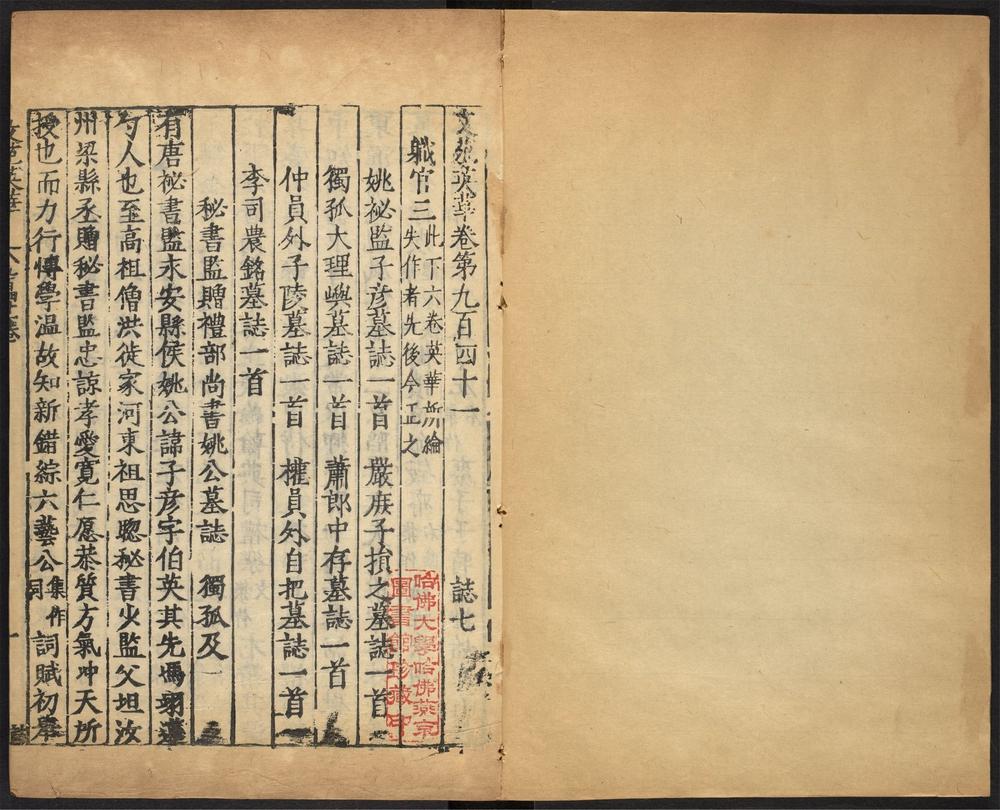 文苑英華卷第九百四十一 誌七
職官三 此下六卷英華所編失作者先後今正之
姚祕監子彦墓誌一首 嚴庶子損之墓誌一首
獨孤大理嶼墓誌一首 蕭郎中存墓誌一首
仲員外子陵墓誌一首 權員外自挹墓誌一首
李司農銘墓誌一首
秘書監贈禮部尚書姚公墓誌 獨孤及
有唐祕書監永安縣侯姚公諱子彦字伯英其先馮翊蓮
勺人也至高祖僧洪徙家河東祖思聦秘書少監父坦汝
州梁縣丞贈秘書監忠諒孝愛寛仁愿恭質方氣冲天所
授也而力行博學温故知新錯綜六藝公集作詞詞賦初舉
哈佛大學哈佛燕京
圖書館珍藏印
文苑英華